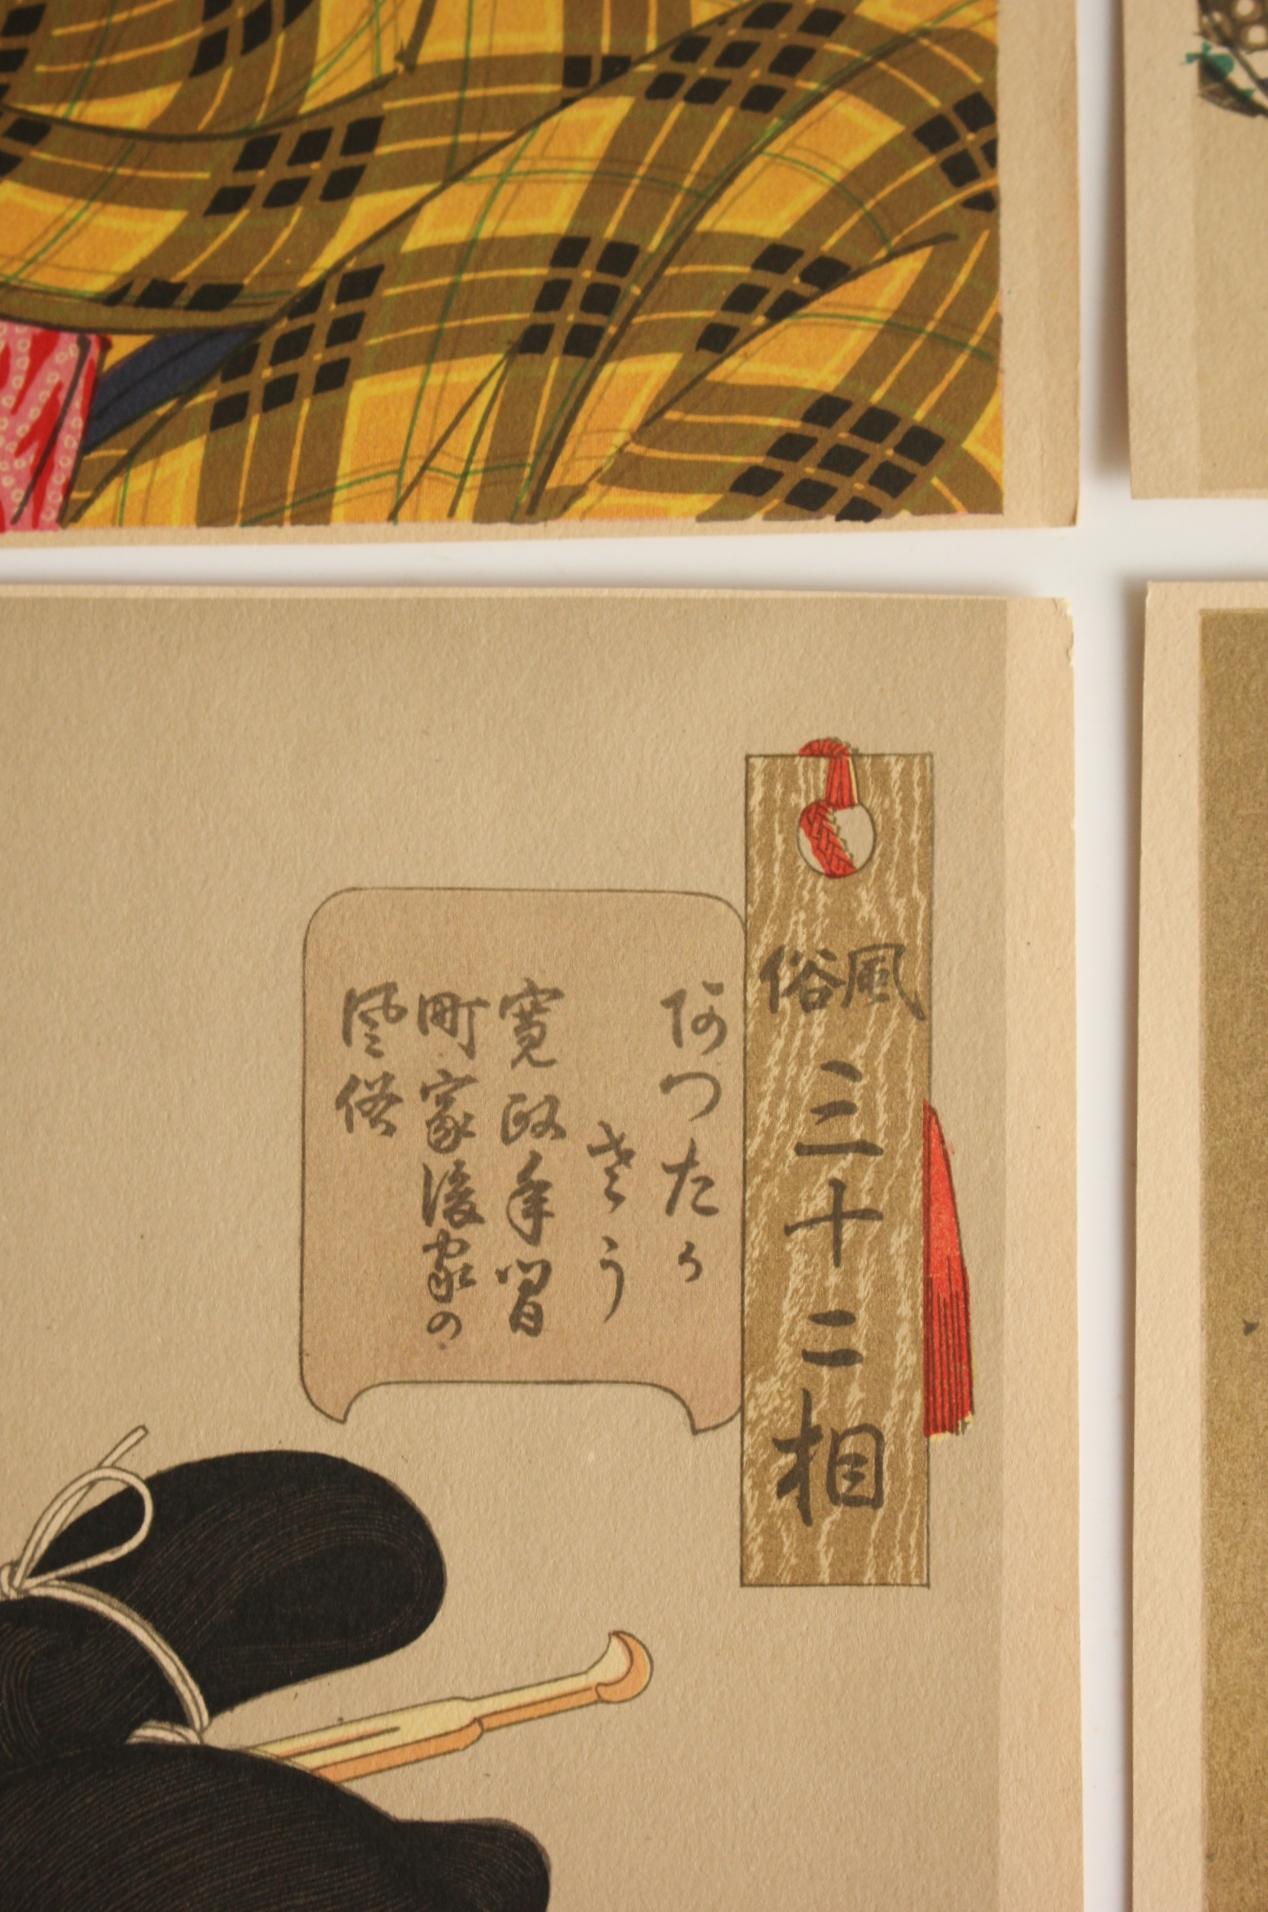 風俗
三十二相
なつたか
さう
寛政年間
町家後家の
风俗